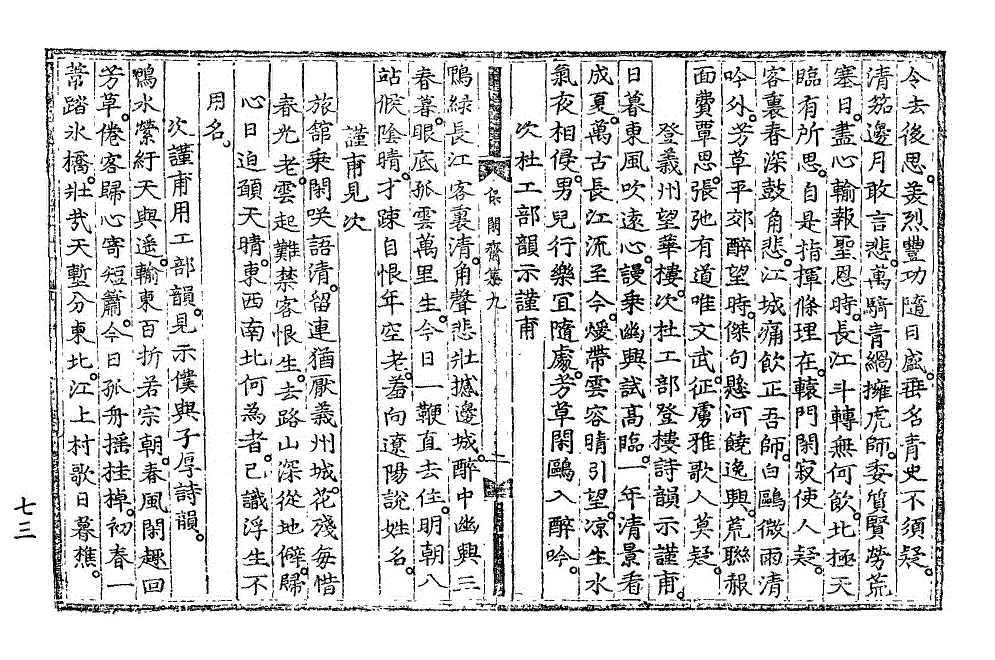 令去後思。姜烈豐功隨日盛。垂名青史不須疑。
清笳邊月敢言悲。萬騎青綢擁虎師。委質賢勞荒
塞日。盡心輸報聖恩時。長江斗轉無何飲。北極天
臨有所思。自是指揮條理在。轅門閑寂使人疑。
客裏春深鼓角悲。江城痛飲正吾師。白鷗微雨清
吟外。芳草平郊醉望時。傑句懸河饒逸興。荒聯報
面費覃思。張弛有道唯文武。征虜雅歌人莫疑。
登義州望華樓。次杜工部登樓詩韻示謹甫。
日暮東風吹遠心。謾乘幽興試高臨。一年清景看
成夏。萬古長江流至今。煖帶雲容晴引望。凉生水
氣夜相侵。男兒行樂宜隨處。芳草閑鷗入醉吟。
次杜工部韻示謹甫
保閑齋集九
二
鴨綠長江客裏清。角聲悲壯撼邊城。醉中幽興三
春暮。眼底孤雲萬里生。今日一鞭直去住。明朝八
站候陰晴。才踈自恨年空老。羞向遼陽說姓名。
謹甫見次
旅舘乘閑咲語清。留連猶厭義州城。花殘每惜
春光老。雲起難禁客恨生。去路山深從地僻。歸
心日迫願天晴。東西南北何為者。已識浮生不
用名。
次謹甫用工部韻。見示僕與子厚詩韻。
鴨水縈紆天與遙。輸東百折若宗朝。春風閑趣回
芳草。倦客歸心寄短簫。今日孤舟搖挂棹。初春一
常踏氷橋。壯哉天塹分東北。江上村歌日暮樵。
七三